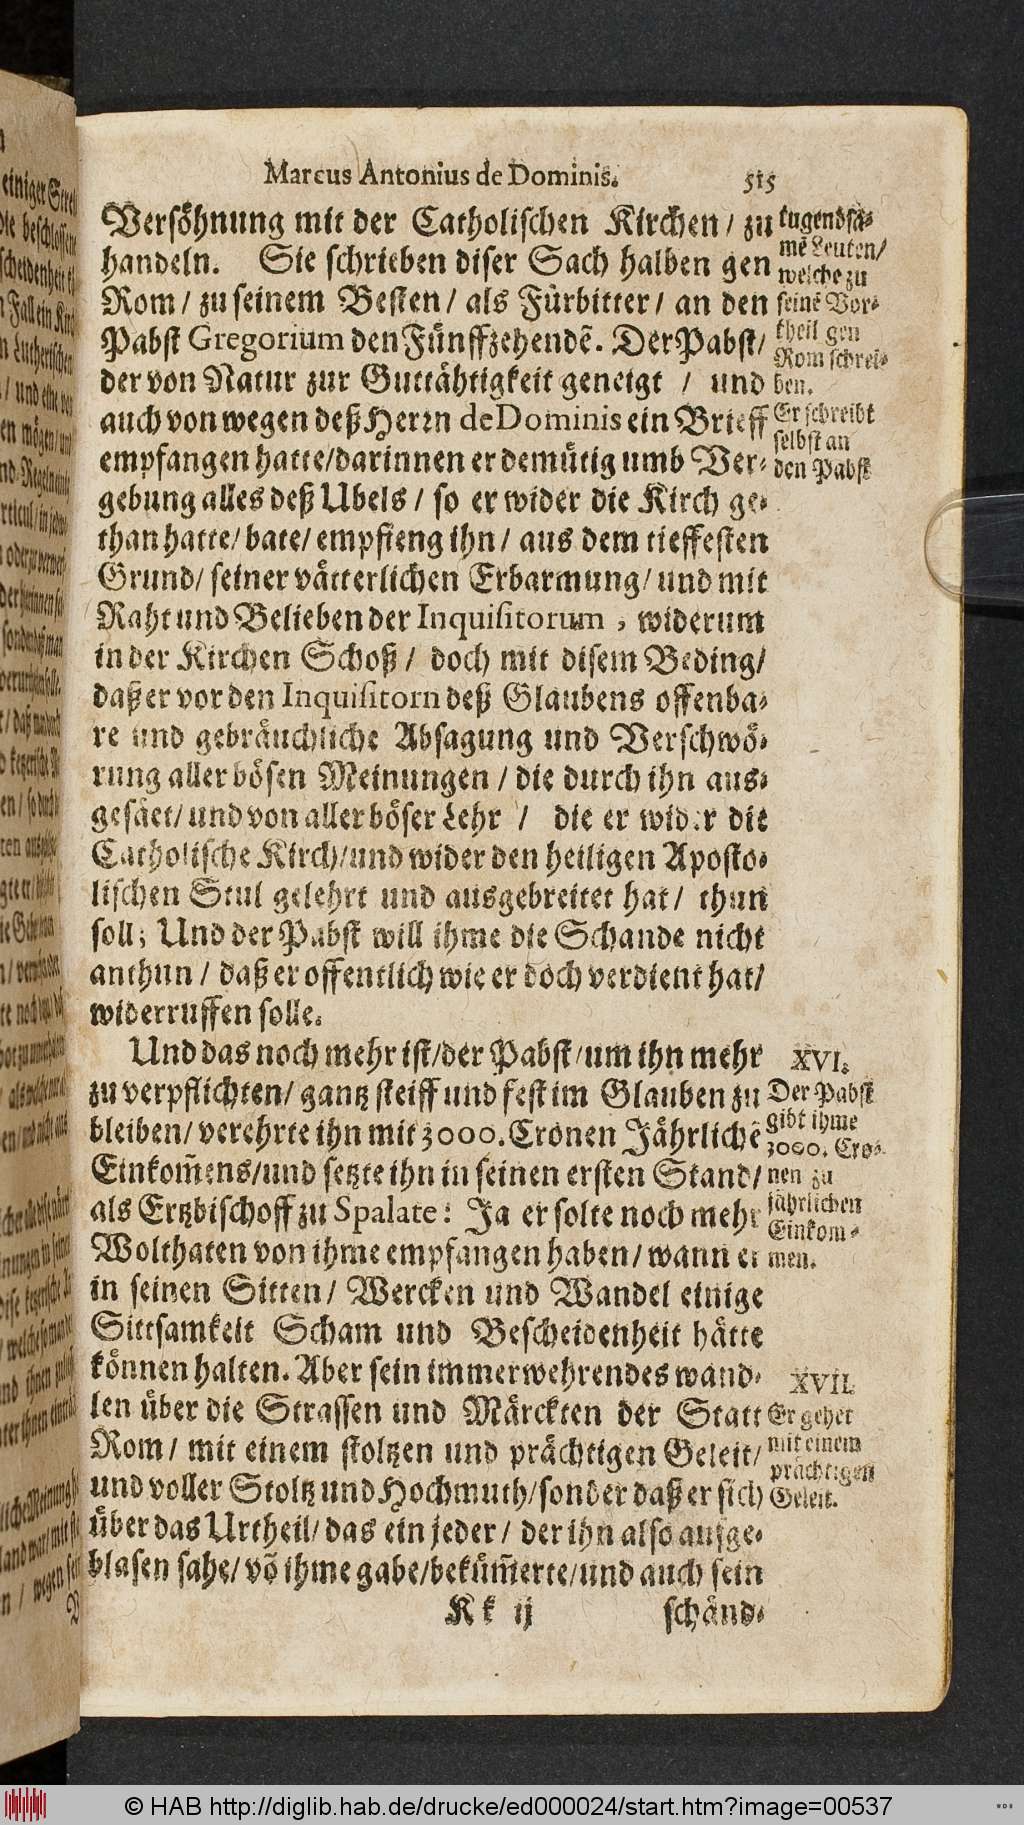 Marcus Antonius de Dominis. 515
Versöhnung mit der Catholischen Kirchen / zu
handeln. Sie schrieben diser Sach halben gen
Rom / zu seinem Besten / als Fürbitter / an den
Pabst Gregorium den Fünffzehendẽ. Der Pabst /
der von Natur zur Guttähtigkeit geneigt / und
auch von wegen deß Herrn de Dominis ein Brieff
empfangen hatte / darinnen er demütig umb Ver-
gebung alles deß Ubels / so er wider die Kirch ge-
than hatte / bate / empfieng ihn / aus dem tieffesten
Grund / seiner vätterlichen Erbarmung / und mit
Raht und Belieben der Inquisitorum, widerum
in der Kirchen Schoß / doch mit disem Beding /
daß er vor den Inquisitorn deß Glaubens offenba-
re und gebräuchliche Absagung und Verschwö-
rung aller bösen Meinungen / die durch ihn aus-
gesäet / und von aller böser Lehr / die er wider die
Catholische Kirch / und wider den heiligen Aposto-
lischen Stul gelehrt und ausgebreitet hat / thun
soll; Und der Pabst will ihme die Schande nicht
anthun / daß er offentlich wie er doch verdient hat /
widerruffen solle.
Und das noch mehr ist / der Pabst / um ihn mehr
zu verpflichten / gantz steiff und fest im Glauben zu
bleiben / verehrte ihn mit 3000. Cronen Jährlichẽ
Einkom̃ens / und setzte ihn in seinen ersten Stand /
als Ertzbischoff zu Spalate: Ja er solte noch mehr
Wolthaten von ihme empfangen haben / wann er
in seinen Sitten / Wercken und Wandel einige
Sittsamkeit Scham und Bescheidenheit hätte
können halten. Aber sein immerwehrendes wand-
len über die Strassen und Märckten der Statt
Rom / mit einem stoltzen und prächtigen Geleit /
und voller Stoltz und Hochmuth / sonder daß er sich
über das Urtheil / das ein jeder / der ihn also aufge-
blasen sahe / võ ihme gabe / beküm̃erte / und auch sein
Kk ij schänd-
tugendsa-
mẽ Leuten /
welche zu
seinẽ Vor-
theil gen
Rom schrei-
ben.
Er schreibt
selbst an
den Pabst
XVI.
Der Pabst
gibt ihme
3000. Cro-
nen zu
jährlichen
Einkom-
men.
XVII.
Er gehet
mit einem
prächtigen
Geleit.
© HAB http://diglib.hab.de/drucke/ed000024/start.htm?image=00537